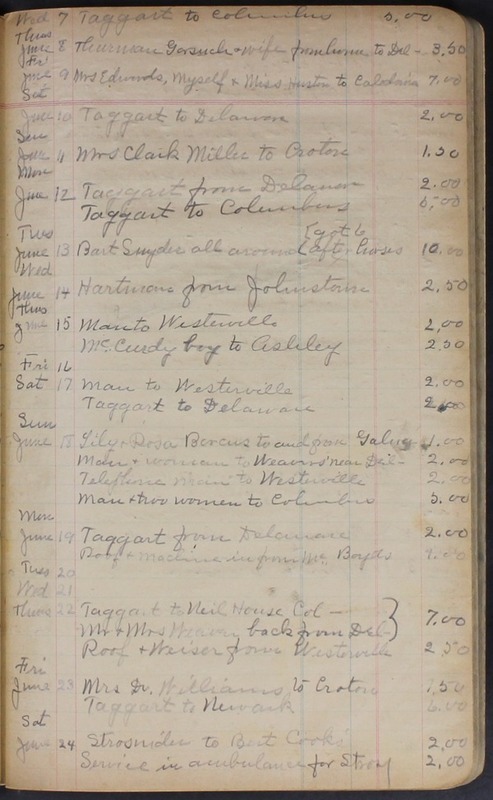 Wed 7 Taggart to Columbus 5.00
Thurs
June 8 Thurman Gorsuch + wife from home to Del - 3.50
Fri
June 9 Mrs Edwards, Myself + Miss Huston to 7.00
Sat
June 10 Taggart to Delaware 2.00
Sun
June 11 Mrs Clark Miller to Croton 1.50
Mon
June 12 Taggart from Delawar 2.00
Taggart to Columbus 5.00
Tues {got 6
June 13 Bart Snyder all around {after horses 10.00
Wed
June 14 Hartman from Johnstown 2.50
Thurs
June 15 Man to Westerville 2.00
McCurdy boy to Ashley 2.50
Fri 16
Sat 17 Man to Westerville 2.00
Taggart to Delaware 2.00
Sun
June 18 + Rosa Borcus to and from 1.00
Man + woman to Weavers near Del - 2.00
Telephone man to Westerville 2.00
Man + two women to Columbus 5.00
Mon
June 19 Taggart from Delaware 2.00
Roof + machine in from Mc Boyds 1.00
Tues 20
Wed 21
Thurs 22 Taggart to Neil House Col - }
Mr + Mrs Weaver back from Del- } 7.00
Roof + Weiser from Westerville 2.50
Fri
June 23 Mrs Dr. Williams to Croton 1.50
Taggart to Newark 6.00
Sat
June 24 Strosnider to Bert Cooks 2.00
Service in ambulance for 2.00